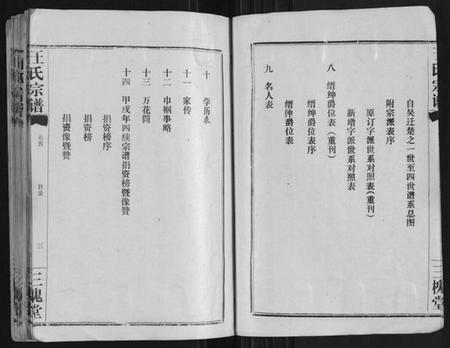 王氏宗谱
三槐堂
自吴迁楚之一世至四世谱系总图
附宗派表序
原订字派世系对照表(重刊)
新增字派世系对照表
八 缙绅爵位表(重刊)
缙绅爵位表序
缙绅爵位表
九 名人表
十 学历表
十一 家传
十二 巾帼事略
十三 万花筒
十四 甲戌年四续宗谱捐资榜暨像赞
捐资榜序
捐资榜
捐资像暨赞
王氏宗谱
卷首
目录
三
三槐堂